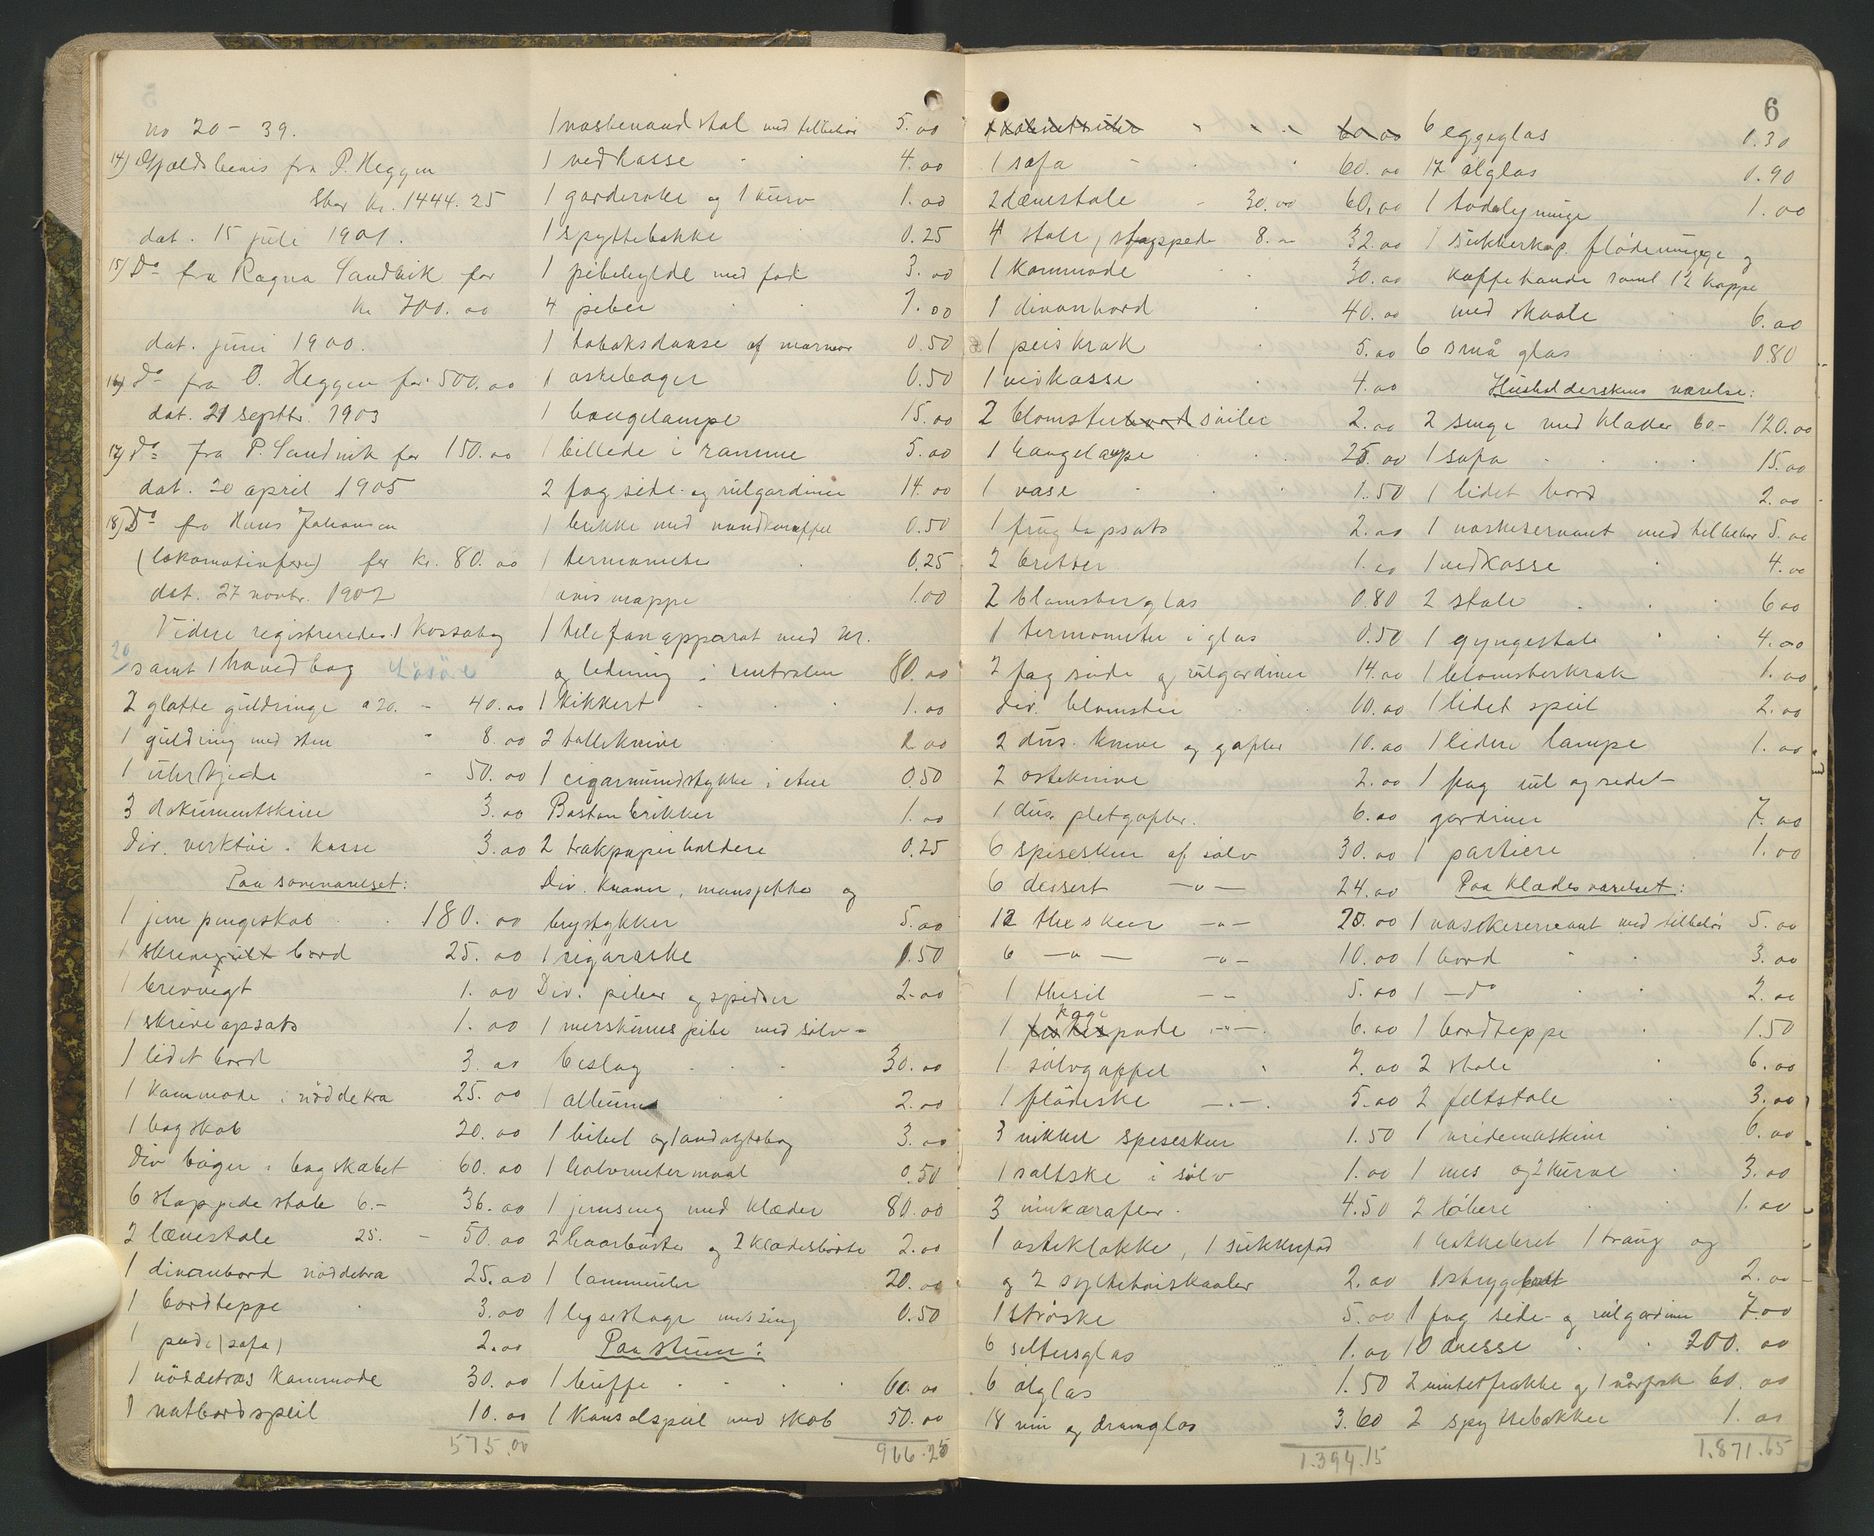 6
no 20 - 39.
14) Gjældsbevis fra P. Heggen
stor kr. 1444.25
dat. 15 juli 1901.
15) Do fra Ragna Sandvik for
kr. 700.00
dat. juni 1900.
16) do fra O. Heggen for 500.00
dat. 21 septbr. 1903
17) do fra P. Sandvik for 150.00
dat. 20 april 1905
18) Do fra Hans Johansen
(lokomotivfører) for kr. 80.00
dat. 27 novbr. 1907
Videre registreredes 1 kassabog
20/ samt 1 hovedbog
2 glatte guldringe a 20. - 40.00
1 guldring med sten " 8.00
1 uhrkjede - 50.00
3 dokumentskrin 3.00
Div. verktøi i kasse 3.00
Paa soveværelset:
1 jern pengeskab 180.00
1 skrive bord 25.00
1 brevvegt 1.00
1 skriveopsats 1.00
1 lidet bord 3.00
1 kommode i nøddetræ 25.00
1 bogskab 20.00
Div bøger i bogskabet 60.00
6 stoppede stole 6.- 36.00
2 lænestole 25. - 50.00
1 divanbord nøddetræ 25.00
1 bordteppe 3.00
1 pude (sofa) 2.00
1 nøddetræs kommode 30.00
1 natbordspeil 10.00
575.00
1 vaskevandstol med tilbehør 5.00
1 vedkasse 4.00
1 garderobe og 1 kurv 1.00
1 spyttebakke 0.25
1 pibehylde med fod 3.00
4 piber 7.00
1 tobaksdaase af marmor 0.50
1 askebæger 0.50
1 hængelampe 15.00
1 billede i ramme 5.00
2 fag side- og rulgardiner 14.00
1 brikke med vandkaraffel 0.50
1 termometer 0.25
1 avismappe 1.00
1 telefonapparat med nr.
og ledning i centralen 80.00
1 kikkert 1.00
2 tolleknive 2.00
1 cigarmundstykke i etui 0.50
Boston brikker 1.00
2 trækpapirholdere 0.25
Div. kraver, mansjetter og
brystykker 5.00
1 cigaræske 1.50
Div. piber og spidser 2.00
1 merskumspibe med sølv-
beslag 30.00
1 album 2.00
1 bibel og 1 andagtsbog 3.00
1 halvmetermaal 0.50
1 jernseng med klæder 80.00
2 haarbørster og 2 klædesbørste 2.00
1 lommeuhr 20.00
1 lysestage messing 0.50
Paa stuen:
1 buffe 60.00
1 konsolspeil med skab 50.00
966.25
60.00
1 sofa 60.00
2 lænestole - 30.00 60.00
4 stole, stoppede 8.- 32.00
1 kommode 30.00
1 divanbord 40.00
1 peiskrak 5.00
1 vedkasse 4.00
2 blomsterbord søiler 2.00
1 hængelampe 25.00
1 vase 1.50
1 frugtopsats 2.00
2 bretter 1.00
2 blomsterglas 0.80
1 termometer i glas 0.50
2 fag side og rulgardiner 14.00
Div. blomster 10.00
2 dus. knive og gafler 10.00
2 osteknive 2.00
1 dus. pletgafler. 6.00
6 spiseskeer af sølv 30.00
6 dessert -"- 24.00
12 theskeer -"- 20.00
6 -"- -"- 10.00
1 thesil -"- 5.00
1 kagespade -"- 6.00
1 sølvgaffel 2.00
1 flødeske -"- 5.00
3 nikkel spiseskeer 1.50
1 saltske i sølv 1.00
3 vinkarafler 4.50
1 osteklokke, 1 sukkerfad
og 2 syltetøiskaaler 2.00
1 strøske 5.00
6 seltersglas 1.00
6 ølglas 1.50
18 vin og dramglas 3.60
1.394.15
6 eggeglas 0.30
17 ølglas 0.90
1 todelymugge 1.00
1 sukkerkop flødemugge og
kaffekande samt 12 koppe
med skaale 6.00
6 små glas 0.80
Husholderskens værelse:
2 senge med klæder 60.- 120.00
1 sofa 15.00
1 lidet bord 2.00
1 vaskeservant med tilbehør 5.00
1 vedkasse 4.00
2 stole 6.00
1 gyngestole 4.00
1 blomsterkrak 1.00
1 lidet speil 2.00
1 liden lampe 1.00
1 fag rul og sidet-
gardiner 7.00
1 portiere 1.00
Paa klædesværelset:
1 vaskeservant med tilbehør 5.00
1 bord 3.00
1 -do 2.00
1 bordteppe 1.50
2 stole 6.00
2 feltstole 3.00
1 vridemaskine 6.00
1 mes og 2 kurve 3.00
2 løbere 1.00
1 hakkebret 1 traug og
1 strygebret 2.00
1 fag side- og rulgardiner 7.00
10 dresse 200.00
2 vinterfrakke og 1 vårfrak 60.00
2 spyttebakker 1.00
1.871.65